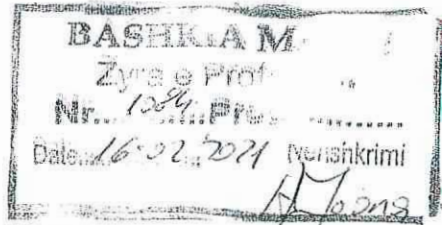 BASHKIA M
Zyra e Prot
Nr. 1084 Prot
Date 16-02-2021 Nënshkrimi